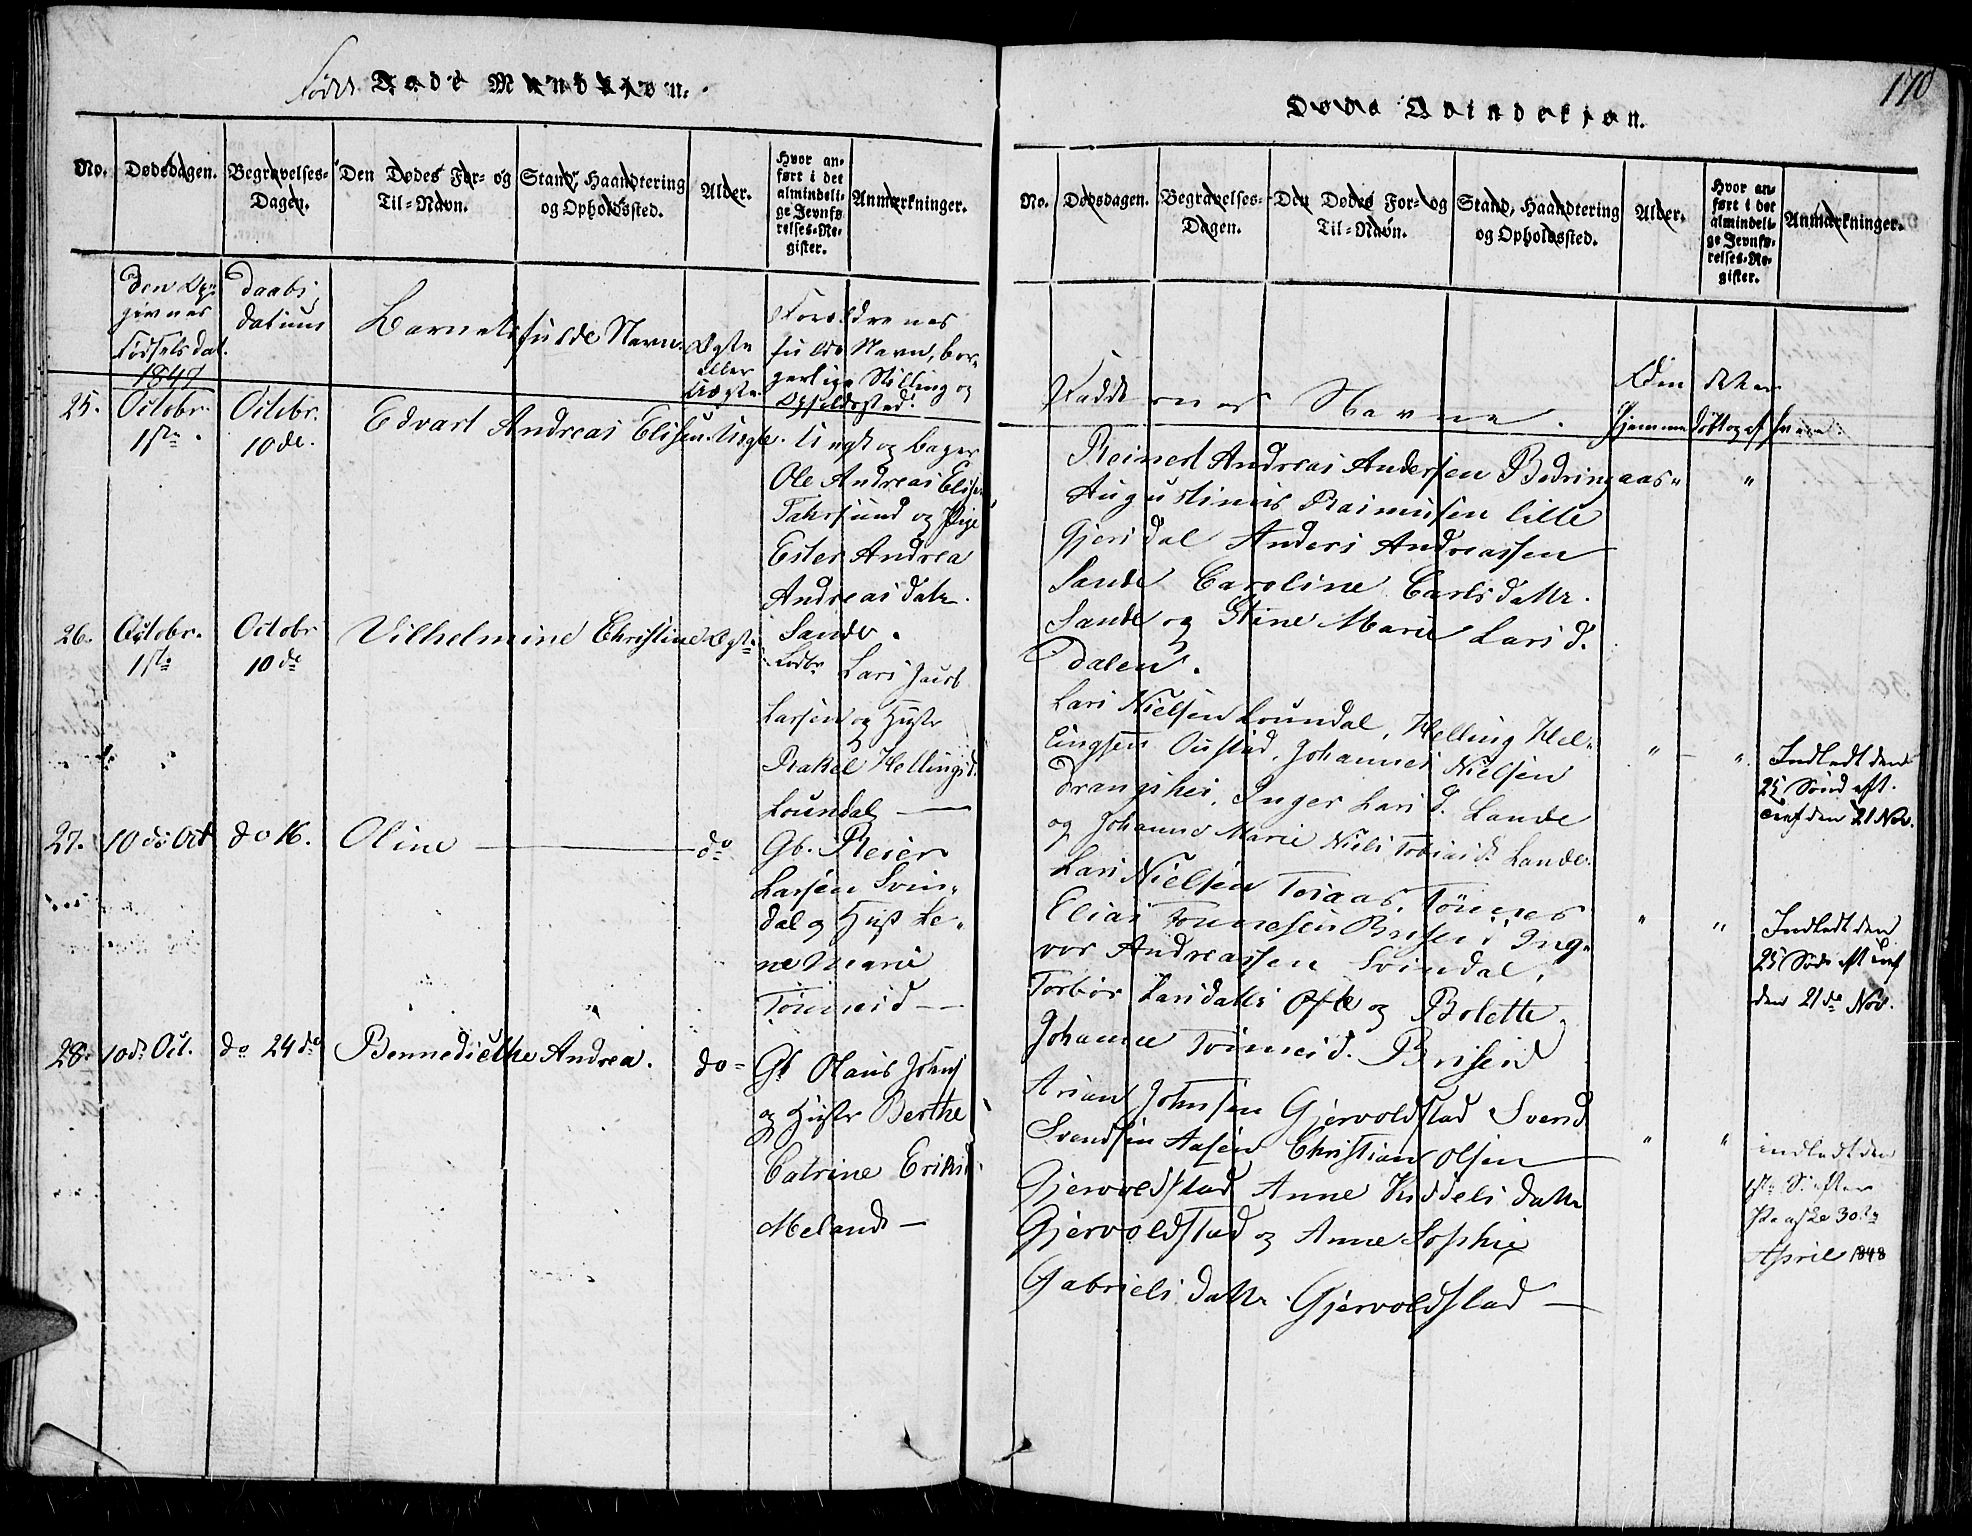 170
Døde Mandkjøn.
No.
Dødsdagen.
Begravelses-
Dagen.
Den Dødes For- og
Til-Navn.
Stand, Haandtering
og Opholdssted.
Alder.
Hvor an-
ført i det
almindeli-
ge Jevnfø
relses-Re-
gister.
Anmærkninger.
Fødselsdat.
1847
Daabs
datum
Barnets fulde Navn.
Ægte
eller
Uægte
Forældrenes
fulde Navn, bor-
gerlige Stilling og
Opholdssted.
25.
Octobr.
1ste
Octobr.
10de.
Edvart Andreas Elisen.
Uægte.
Ungk og bager
Ole Andreas Elisen
Farsund og Pige
Ester Andrea
Andreas datr.
Sande.
26.
Octobr.
1ste
Octobr
10de
Vilhelmine Christine
Ægte
Lars Jacob
Larsen og Hustr
Rakel Hellingsd.
Loundal —
27.
10de Oct
do 16.
Oline
do
Gb. Reier
Larsen Svin-
dal og Hust Le-
ne Marie
Tønnesd —
28.
10de Oct.
do 24de
Bennedicthe Andrea.
do
Gb Olaus Johns
og Hustr Berthe
Catrine Eriksd
Meland —
Døde Qvindekjøn.
No.
Dødsdagen.
Begravelses-
Dagen.
Den Dødes For- og
Til-Navn.
Stand, Haandtering
og Opholdssted.
Alder.
Hvor an-
ført i det
almindeli-
ge Jevnfø-
relses-Re-
gister.
Anmærkninger.
Faddernes Navne.
Hjemmedøbt og af hvem
Reinert Andreas Andersen Bedringaas " "
Augustinus Rasmusen lille
Gjersdal Anders Andreassen
Sande Caroline Carlsdattr.
Sande og Stine Marie Lars d.
Dalen.
Lars Nielsen Loundal, Helling Hel-
lingsen Oustad, Johannes Nielsen
Drangshei, Inger Lars d. Lande
og Johanne Marie Niels Tobiasd. Lande.
" "
Indledt den
25 Sønd eft.
Tref den 21 Nov.
Lars Nielsen Tosaas, Tønnes
Elias Tønnesen Brisen Ing-
vor Andreassen Svindal,
Torbor Larsdattr Ofte og Bolette
Johanne Tønnesd. Briseid
" "
Indledt den
25 Sønd eft tref
den 21de Nov.
Arian Johnsen Gjervoldstad Svend
Svendsen Aasen Christian Olsen
Gjervoldstad Anne Kiddels dattr
Gjervoldstad og Anne Sophie
Gabriels dattr Gjervoldstad —
" "
indledt den
1ste S. efter
Paaske 30te
April 1848